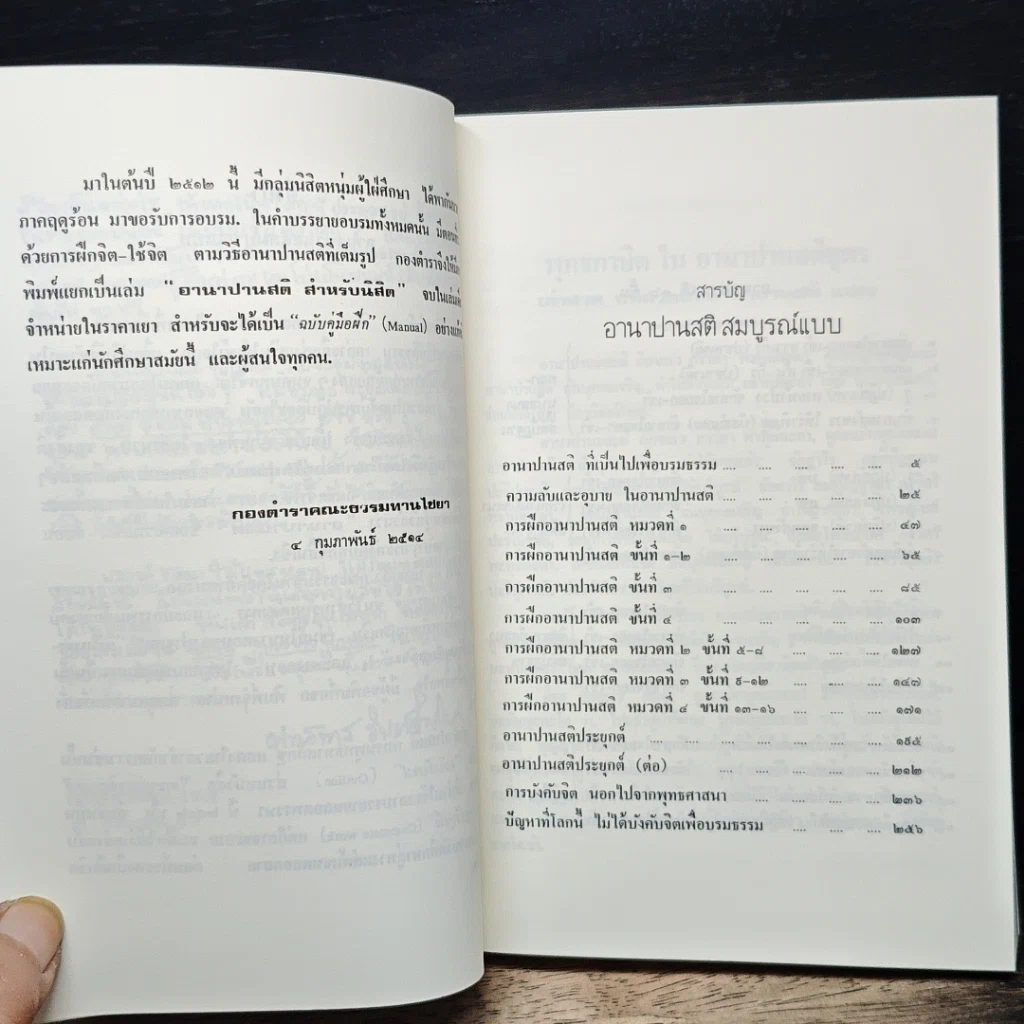 มาในต้นปี ๒๕๑๒ นี้ มีกลุ่มนิสิตหนุ่มผู้ใฝ่ศึกษา ได้พากันมา
ภาคฤดูร้อน มาขอรับการอบรม. ในคำบรรยายอบรมทั้งหมดนั้น มีตอนที่
ด้วยการฝึกจิต-ใช้จิต ตามวิธีอานาปานสติที่เต็มรูป กองตำราจึงให้
พิมพ์แยกเป็นเล่ม "อานาปานสติ สำหรับนิสิต" จบในเล่ม
จำหน่ายในราคาเยา สำหรับจะได้เป็น "ฉบับคู่มือฝึก" (Manual) อย่าง
เหมาะแก่นักศึกษาสมัยนี้ และผู้สนใจทุกคน.
กองตำราคณะธรรมทานไชยา
๔ กุมภาพันธ์ ๒๕๑๔
สารบัญ
อานาปานสติ สมบูรณ์แบบ
อานาปานสติ ที่เป็นไปเพื่อบรมธรรม .... .... .... .... .... ๕
ความลับและอุบาย ในอานาปานสติ .... .... .... .... .... ๒๕
การฝึกอานาปานสติ หมวดที่ ๑ .... .... .... .... .... ๔๗
การฝึกอานาปานสติ ขั้นที่ ๑-๒ .... .... .... .... .... ๖๕
การฝึกอานาปานสติ ขั้นที่ ๓ .... .... .... .... .... ๘๕
การฝึกอานาปานสติ ขั้นที่ ๔ .... .... .... .... .... ๑๐๓
การฝึกอานาปานสติ หมวดที่ ๒ ขั้นที่ ๕-๘ .... .... .... ๑๒๗
การฝึกอานาปานสติ หมวดที่ ๓ ขั้นที่ ๙-๑๒ .... .... .... ๑๔๗
การฝึกอานาปานสติ หมวดที่ ๔ ขั้นที่ ๑๓-๑๖ .... .... .... ๑๗๑
อานาปานสติประยุกต์ .... .... .... .... .... .... .... ๑๙๕
อานาปานสติประยุกต์ (ต่อ) .... .... .... .... .... ๒๑๒
การบังคับจิต นอกไปจากพุทธศาสนา .... .... .... .... ๒๓๖
ปัญหาที่โลกนี้ ไม่ได้บังคับจิตเพื่อบรมธรรม .... .... .... ๒๕๖